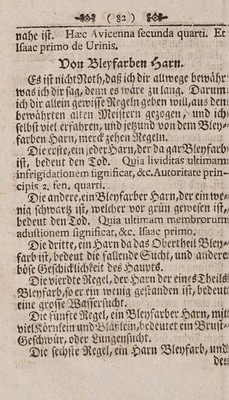 ( 82 )
nahe ist. Hæc Avicenna secunda quarti. Et
Isaac primo de Urinis.
Von Bleyfarben Harn.
Es ist nicht Noth, daß ich dir allwege bewähr
was ich dir sag, denn es wäre zu lang. Darum
ich dir allein gewisse Regeln geben will, aus den
bewährten alten Meistern gezogen, und ich
selbst viel erfahren, und jetzund von dem Bley-
farben Harn, merck zehen Regeln.
Die erste, ein jeder Harn, der da gar Bleyfarb
ist, bedeut den Tod. Quia lividitas ultimam
infrigidationem significat, &c. Autoritate prin-
cipis 2. fen. quarti.
Die andere, ein Bleyfarber Harn, der ein we-
nig schwartz ist, welcher vor grün gewesen ist,
bedeut den Tod. Quia ultimam membrorum
adustionem significat, &c. Isaac primo.
Die dritte, ein Harn da das Obertheil Bley-
farb ist, bedeut die fallende Sucht, und andere
böse Geschicklichkeit des Haupts.
Die vierdte Regel, der Harn der eines Theils
Bleyfarb, so er ein wenig gestanden ist, bedeut
eine grosse Wassersucht.
Die fünfte Regel, ein Bleyfarber Harn, mit
viel Körnlein und Bläslein, bedeutet ein Brust-
Geschwür, oder Lungensucht.
Die sechste Regel, ein Harn Bleyfarb, und